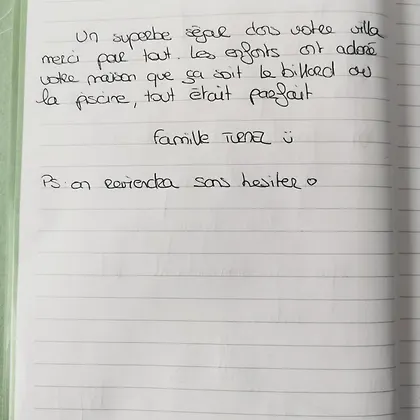 Un superbe séjour dans votre villa
merci pour tout. Les enfants ont adoré
votre maison que ça soit le billard ou
la piscine, tout était parfait
Famille
PS: on reviendra sans hesiter